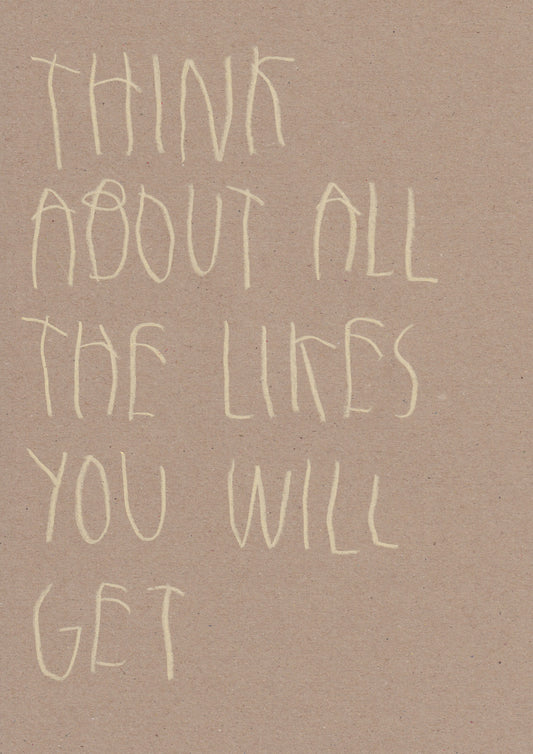 THINK
ABOUT ALL
THE LIKES
YOU WILL
GET